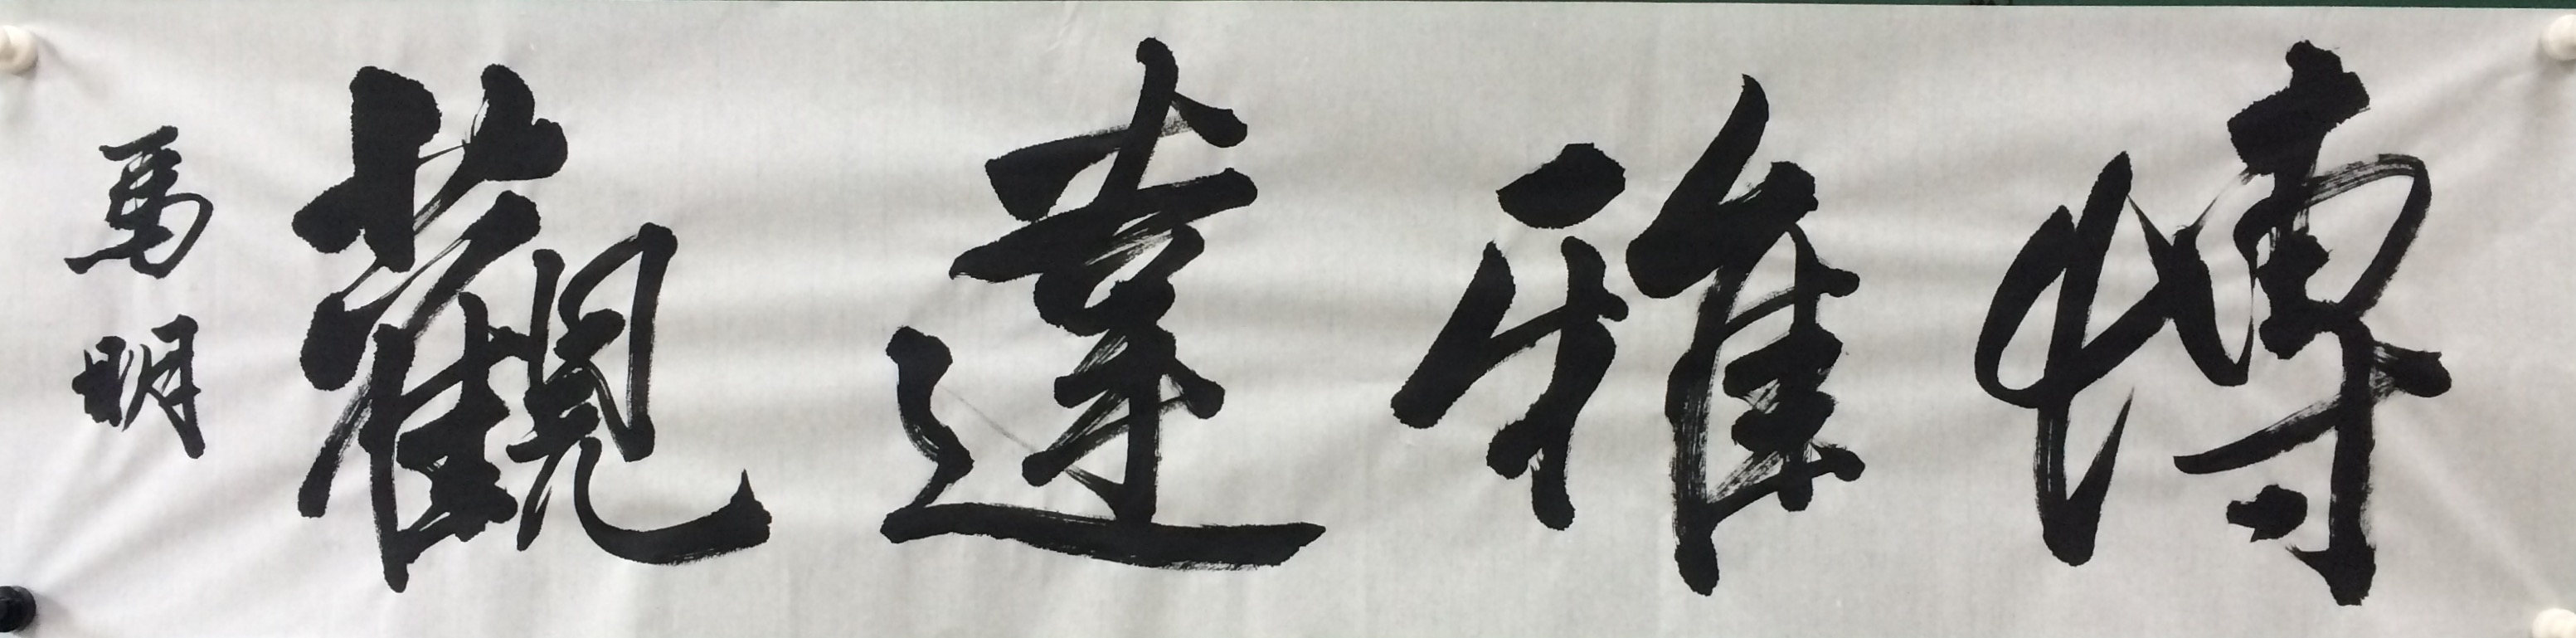 博雅達觀
馬明